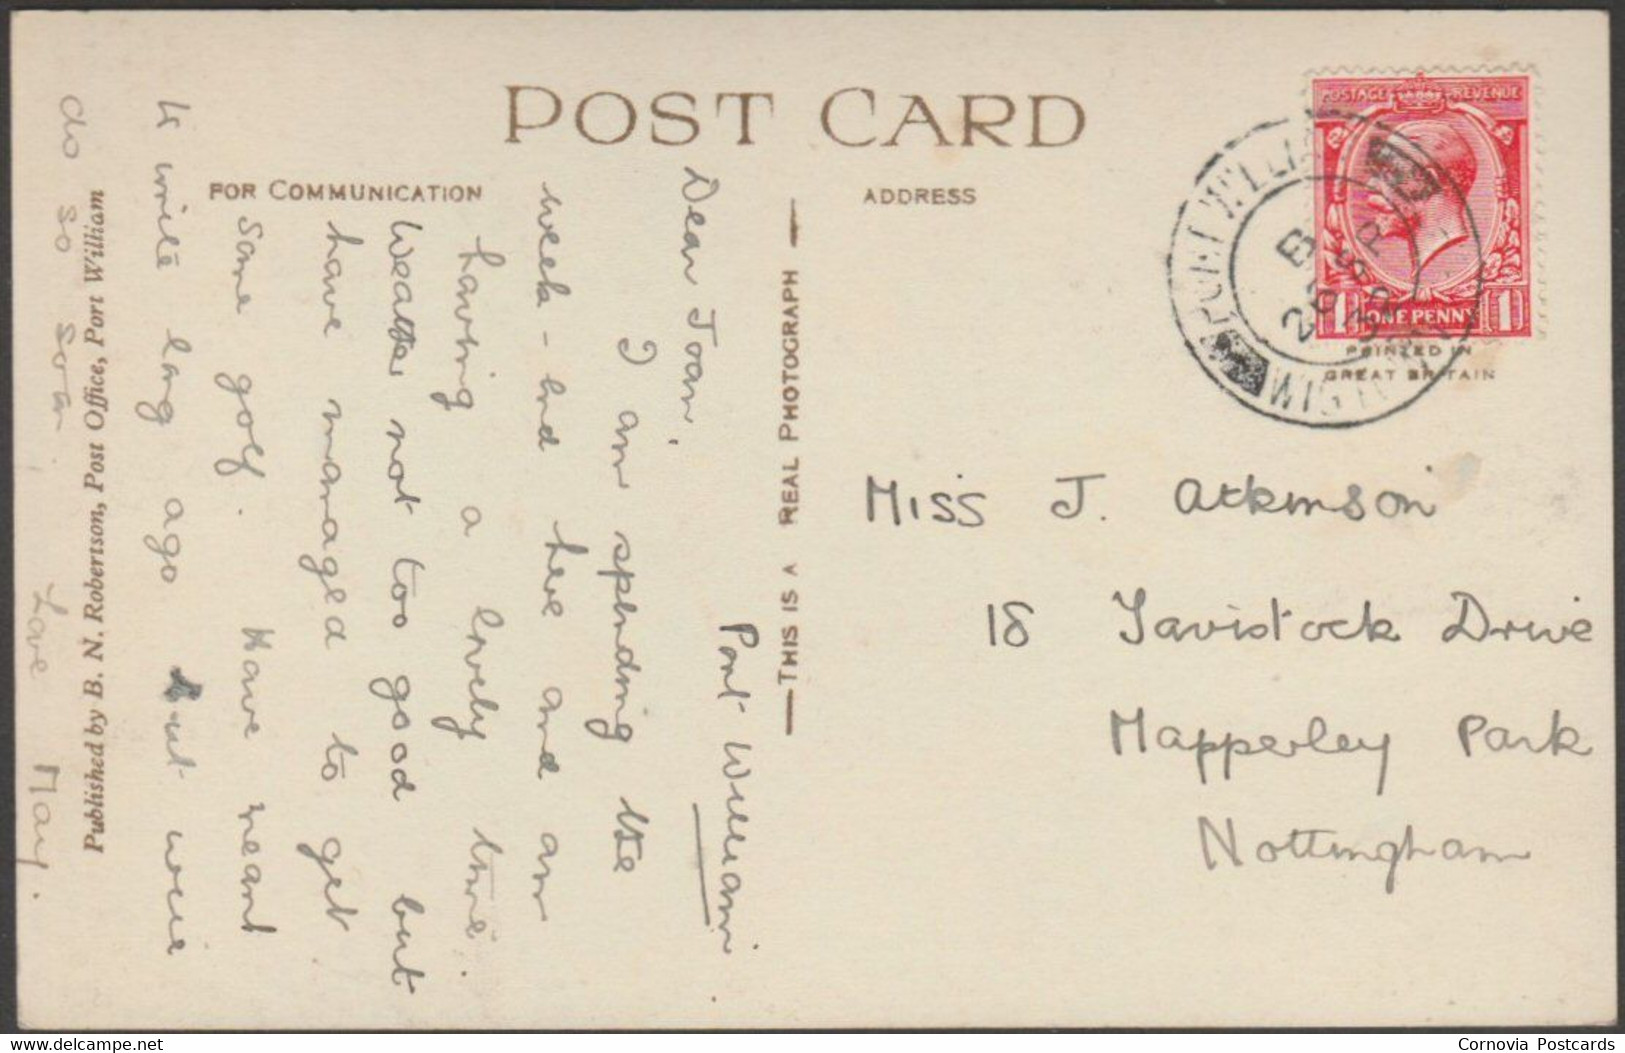 POST CARD
FOR COMMUNICATION
ADDRESS
Port William
Dear Joan,
I am spending the
week-end here and am
having a lovely time.
Weather not too good but
have managed to get
some golf. Have meant
to write long ago but will
do so soon.
Love May.
Published by B. N. Robertson, Post Office, Port William
THIS IS A REAL PHOTOGRAPH
POSTAGE REVENUE
1 ONE PENNY 1
PRINTED IN
GREAT BRITAIN
PORT WILLIAM
B
20 SP
32
WIGTOWN
Miss J. Atkinson
18 Tavistock Drive
Mapperley Park
Nottingham
delcampe.net
Cornovia Postcards